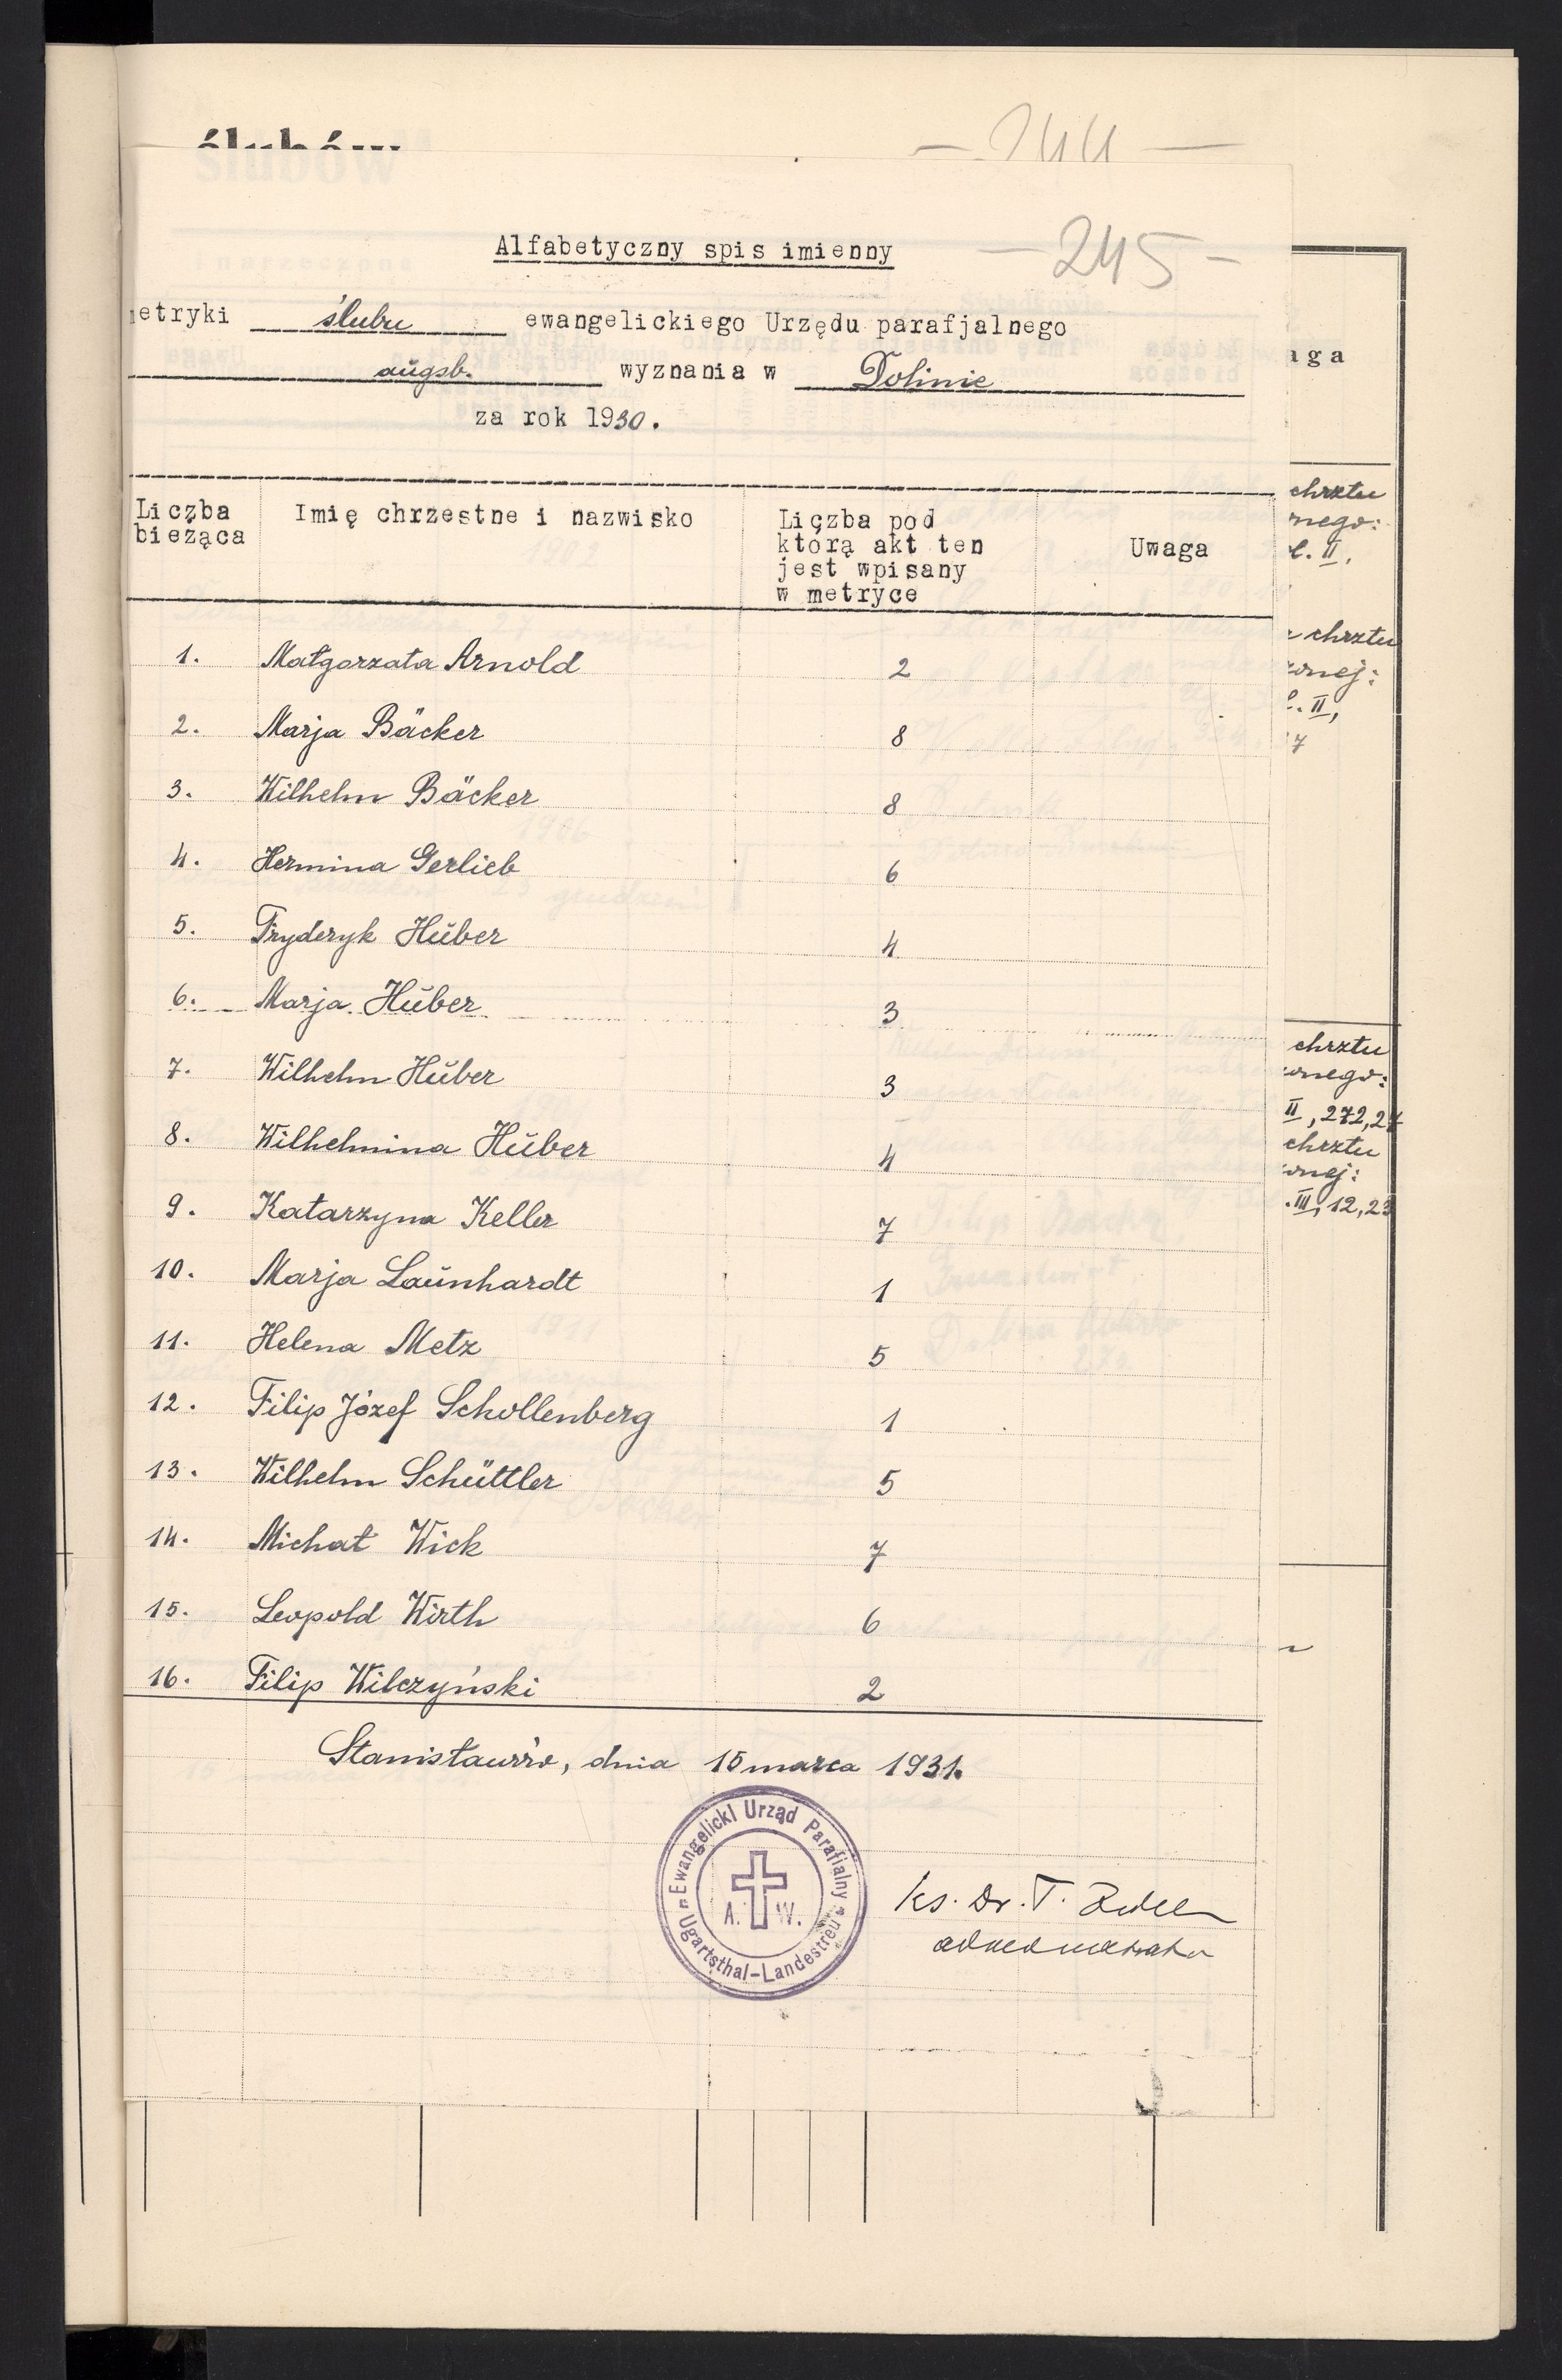 ślubów
— 244 —
Alfabetyczny spis imienny
— 245 —
etryki ślubu ewangelickiego Urzędu parafjalnego
augsb. wyznania w Dolinie
za rok 1930.
Liczba bieżąca | Imię chrzestne i nazwisko | Liczba pod którą akt ten jest wpisany w metryce | Uwaga
1. Małgorzata Arnold 2
2. Marja Bäcker 8
3. Wilhelm Bäcker 8
4. Hermina Gerlieb 6
5. Fryderyk Hŭber 4
6. Marja Hŭber 3
7. Wilhelm Hŭber 3
8. Wilhelmina Hŭber 4
9. Katarzyna Keller 7
10. Marja Laŭnhardt 1
11. Helena Metz 5
12. Filip Józef Schollenberg 1
13. Wilhelm Schüttler 5
14. Michał Wick 7
15. Leopold Wirth 6
16. Filip Wilczyński 2
Stanisławów, dnia 15 marca 1931.
Ewangelicki Urząd Parafialny
A. W.
Ugartsthal-Landestreu
ks. Dr. T.
aga
chrztu
nego:
l. II,
chrztu
onej:
l. II,
7
chrztu
onego:
II, 272, 27
chrztu
onej:
. III, 12, 23